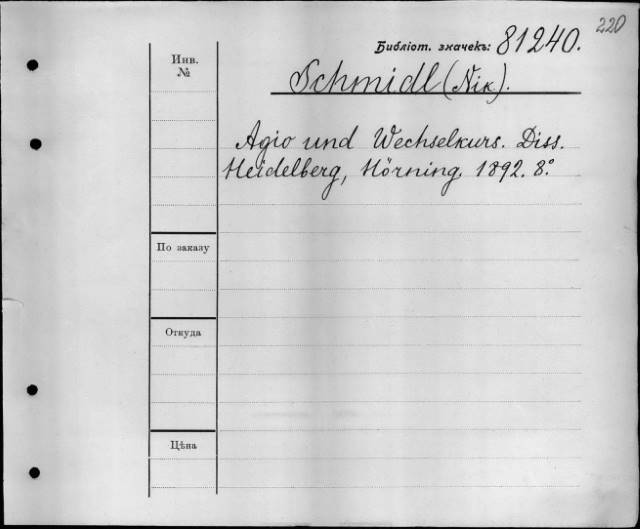 220
Библіот. значекъ: 81240.
Инв.
№
Schmidl (Nik).
Agio und Wechselkurs. Diss.
Heidelberg, Hörning. 1892. 8.°
По заказу
Откуда
Цѣна